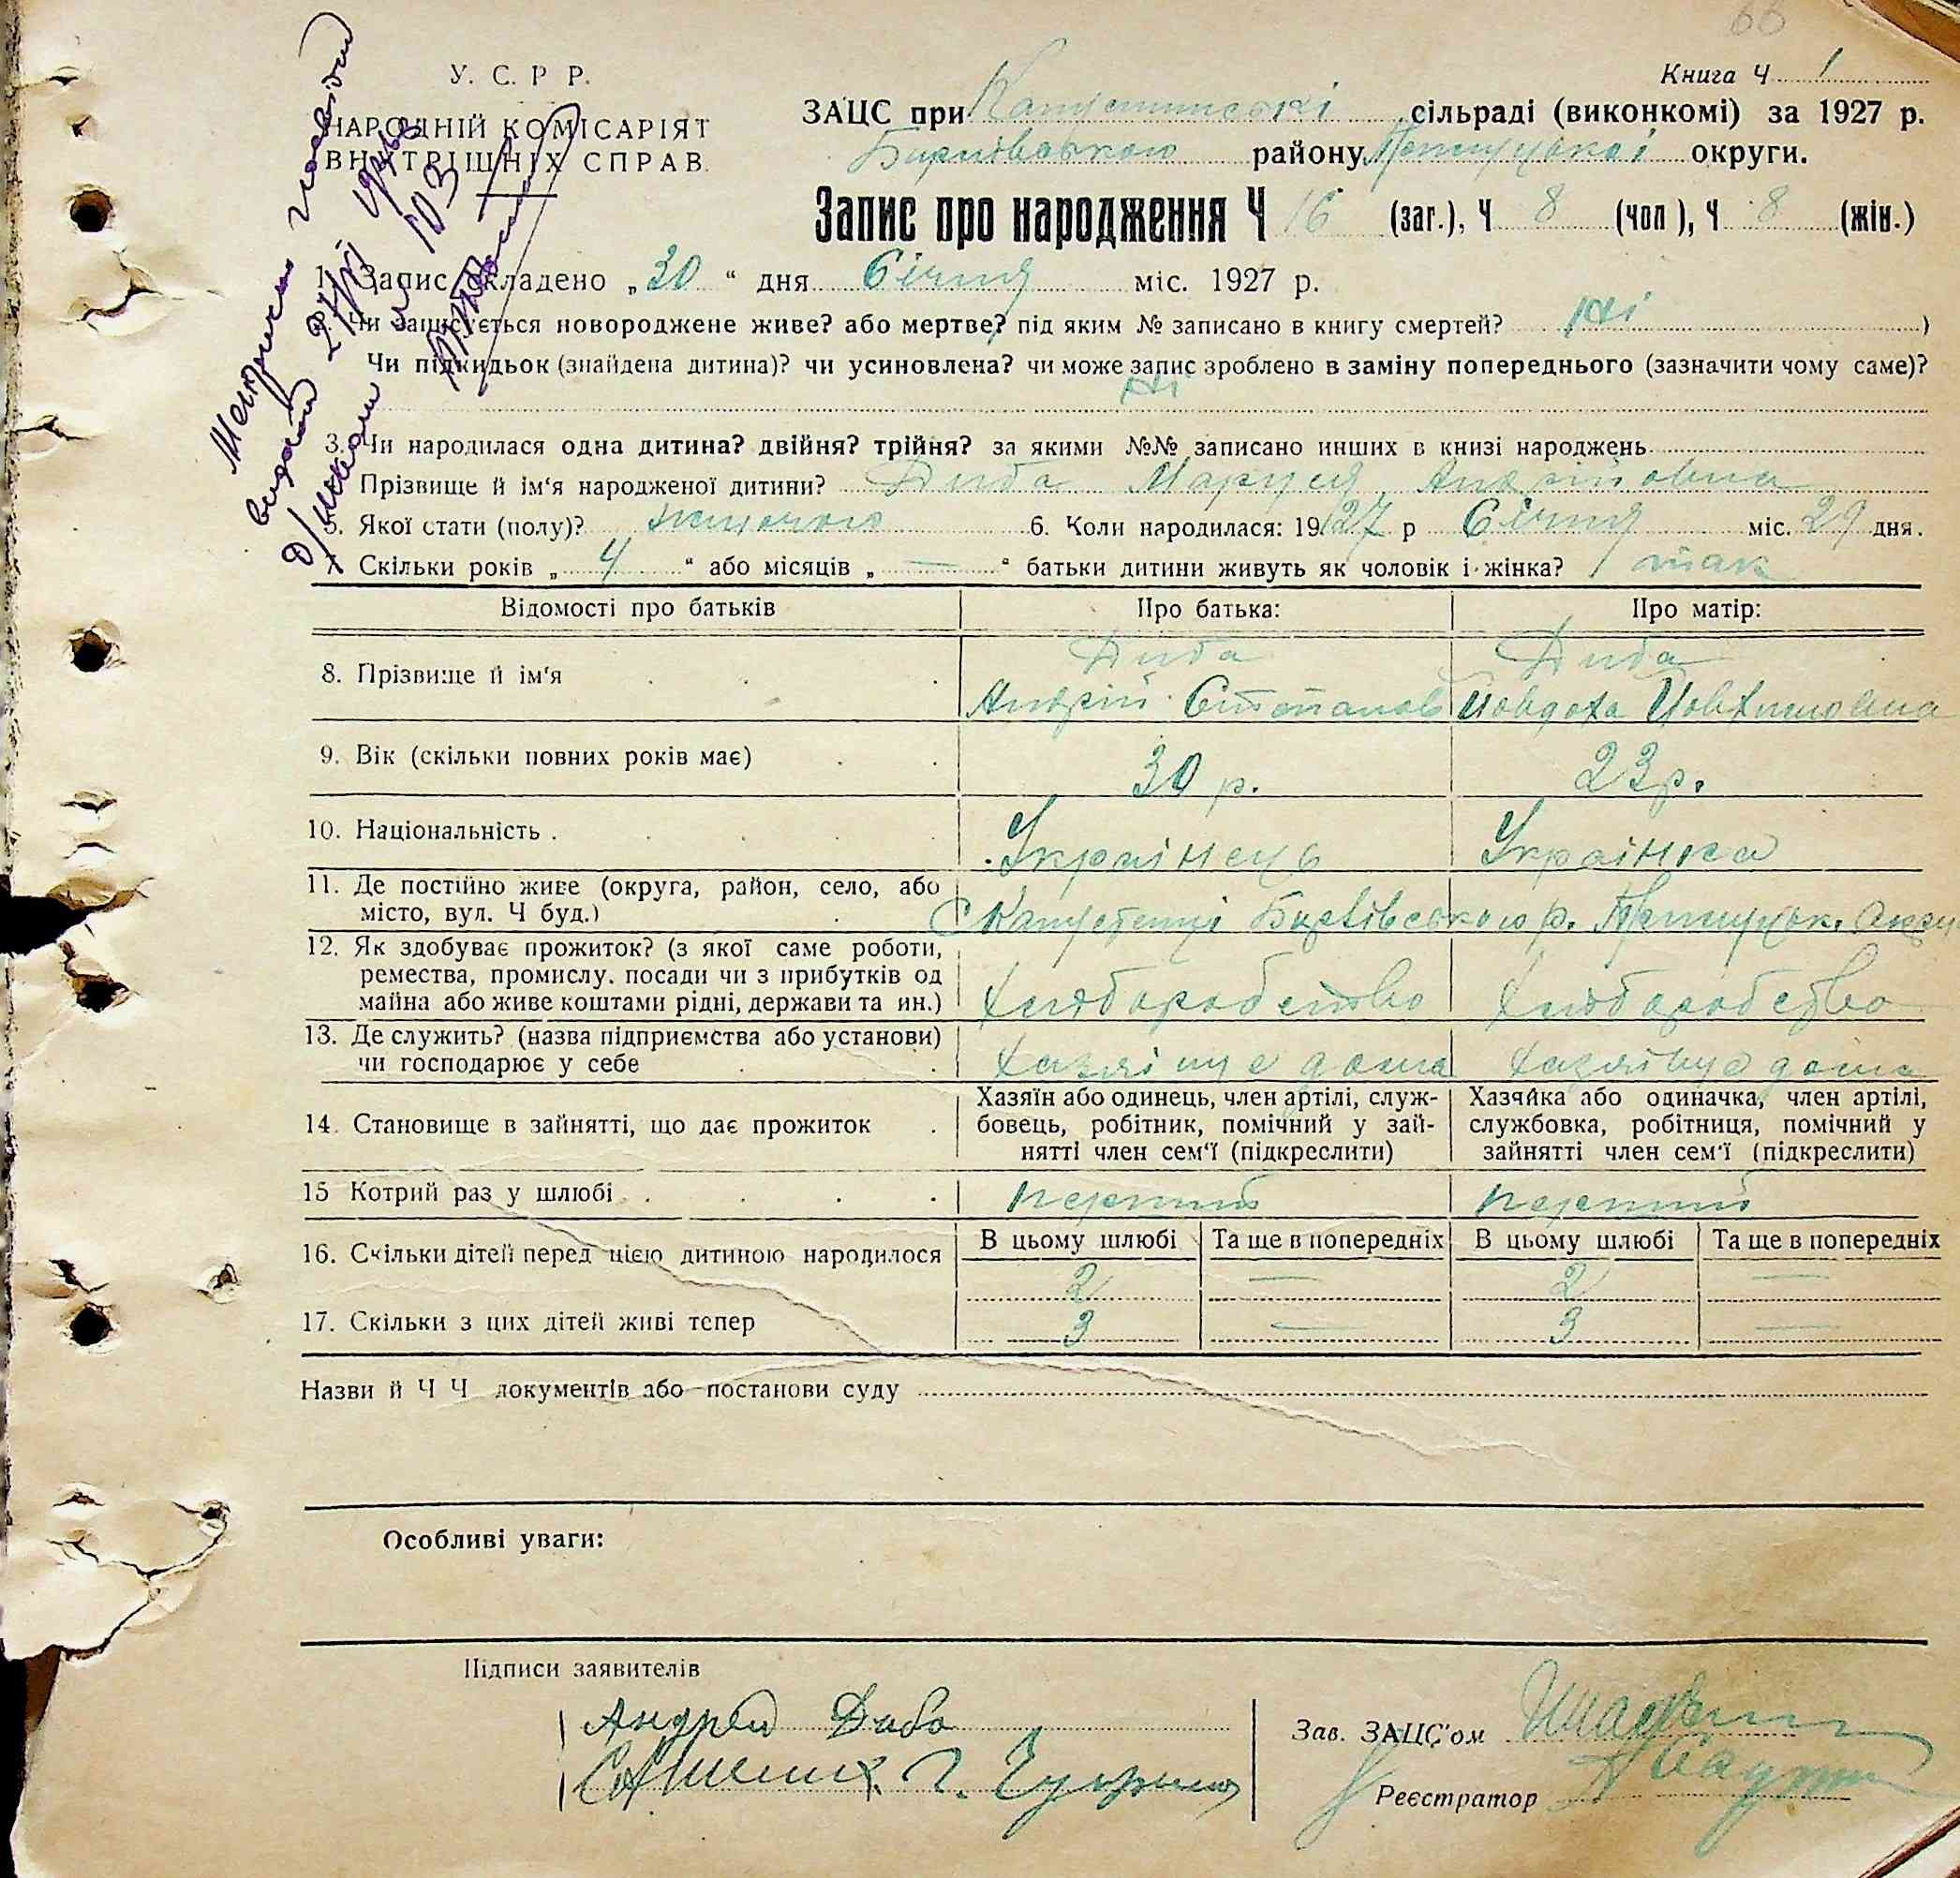 66
У. С. Р Р.
НАРОДНІЙ КОМІСАРІЯТ
ВНУТРІШНІХ СПРАВ.
Книга Ч 1
ЗАЦС при сільраді (виконкомі) за 1927 р.
району округи.
Запис про народження Ч 16 (заг.), Ч 8 (чол), Ч 8 (жін.)
1. Запис складено „30“ дня Січня міс. 1927 р.
Чи записується новороджене живе? або мертве? під яким № записано в книгу смертей? Ні )
Чи підкидьок (знайдена дитина)? чи усиновлена? чи може запис зроблено в заміну попереднього (зазначити чому саме)?
Ні
3. Чи народилася одна дитина? двійня? трійня? за якими №№ записано инших в книзі народжень
Прізвище й ім'я народженої дитини? Диба Маруся Андріівна
5. Якої стати (полу)? жіночого 6. Коли народилася: 1927 р Січня міс. 29 дня.
7 Скільки років „ 4 “ або місяців „ — “ батьки дитини живуть як чоловік і жінка? так
Відомості про батьків Про батька: Про матір:
8. Прізвище й ім'я Диба Диба
Андрій Степанов
9. Вік (скільки повних років має) 30 р. 23 р.
10. Національність . Українець Українка
11. Де постійно живе (округа, район, село, або
місто, вул. Ч буд.)
12. Як здобуває прожиток? (з якої саме роботи,
ремества, промислу. посади чи з прибутків од
майна або живе коштами рідні, держави та ин.) Хліборобство Хліборобство
13. Де служить? (назва підприємства або установи)
чи господарює у себе Хазяінує дома Хазяінує дома
14. Становище в зайнятті, що дає прожиток
Хазяїн або одинець, член артілі, служ-
бовець, робітник, помічний у зай-
нятті член сем'ї (підкреслити)
Хазяйка або одиначка, член артілі,
службовка, робітниця, помічний у
зайнятті член сем'ї (підкреслити)
15 Котрий раз у шлюбі перший перший
В цьому шлюбі Та ще в попередніх В цьому шлюбі Та ще в попередніх
16. Скільки дітей перед цією дитиною народилося 2 — 2 —
17. Скільки з цих дітей живі тепер 3 — 3 —
Назви й Ч Ч документів або постанови суду
Особливі уваги:
Підписи заявителів
Андрей Диба
Зав. ЗАЦС'ом
Реєстратор